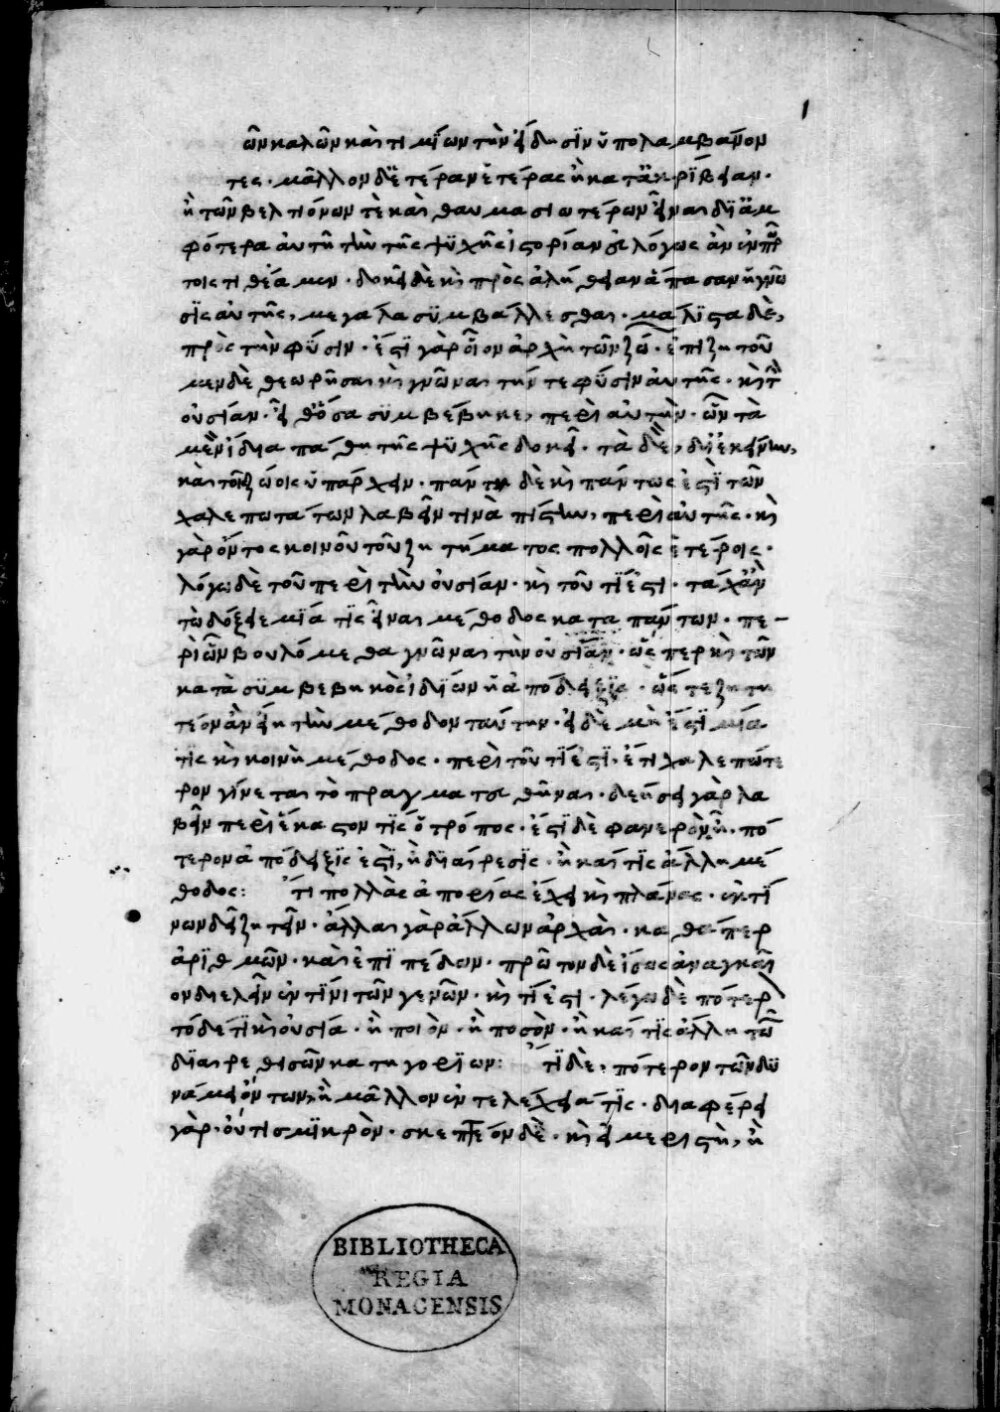 1
ῶν καλῶν καὶ τιμίων τὴν εἴδησιν ὑπολαμβάνον
τες· μᾶλλον δὲ τέραν ἑτέρας ἢ κατ' ἀκρίβειαν·
ἢ τῶν βελτιόνων τὲ καὶ θαυμασιωτέρων εἶναι δι' ἀμ
φότερα αὐτῆ τὴν τῆς ψυχῆς ἱστορίαν εὐλόγως ἂν ἐν πρώ
τοις τιθείημεν· δοκεῖ δὲ κὶ πρὸς ἀλήθειαν ἅπασαν ἡ γνῶ
σις αὐτῆς, μεγάλα συμβάλλεσθαι· μάλιστα δὲ,
πρὸς τὴν φύσιν· ἐστὶ γὰρ οἷον ἀρχὴ τῶν ζώ· ἐπιζητοῦ
μεν δὲ θεωρῆσαι κὶ γνῶναι τήν τε φύσιν αὐτῆς· κὶ τὴν
οὐσίαν· εἶθ' ὅσα συμβέβηκε, περὶ αὐτὴν· ὧν τὰ
μὲν ἴδια πάθη τῆς ψυχῆς δοκεῖ· τὰ δὲ, δι' ἐκείνην,
καὶ τοῖς ζώοις ὑπάρχειν· πάντη δὲ κὶ πάντως ἐστὶ τῶν
χαλεπωτάτων λαβεῖν τινὰ πίστιν, περὶ αὐτῆς· κὶ
γὰρ ὄντος κοινοῦ τοῦ ζητήματος πολλοῖς ἑτέροις·
λόγω δὲ τοῦ περὶ τὴν οὐσίαν· κὶ τοῦ τί ἐστι· τάχ' ἄν
τω δόξειε μία τις εἶναι μέθοδος κατα πάντων· πε-
ρὶ ὧν βουλόμεθα γνῶναι τὴν οὐσίαν· ὥσπερ κὶ τῶν
κατὰ συμβεβηκὸς ἰδίων ἡ ἀπόδειξις· ὥστε ζητη
τέον ἂν εἴη τὴν μέθοδον ταύτην· εἰ δὲ μὴ ἐστὶ μία
τὶς κὶ κοινὴ μέθοδος· περὶ τοῦ τί ἐστὶ· ἔτι χαλεπώτε
ρον γίνεται τὸ πραγματευθῆναι· δεήσει γὰρ λα
βεῖν περὶ ἕκαστον τίς ὁ τρόπος· ἐὰν δὲ φανερὸν ἦ· πό
τερον ἀπόδειξις ἐστὶ, ἢ διαίρεσις· ἢ καί τις ἄλλη μέ
θοδος: ἔτι πολλὰς ἀπορίας ἔχει κὶ πλάνας· ἐκ τί
νων δεῖ ζητεῖν· ἄλλαι γὰρ ἄλλων ἀρχαὶ· καθάπερ
ἀριθμῶν· καὶ ἐπιπέδων· πρῶτον δὲ ἴσως ἀναγκαῖ
ον διελεῖν ἐν τίνι τῶν γενῶν· κὶ τί ἐστι· λέγω δὲ πότερ
τόδε τι κὶ οὐσία· ἢ ποιὸν· ἢ ποσὸν· ἢ καί τις ἄλλη τῶν
διαιρεθεισῶν κατηγοριῶν: ἔτι δὲ, πότερον τῶν δυ
νάμει ὄντων, ἢ μᾶλλον ἐντελέχειά τις· διαφέρει
γὰρ· οὔτι σμικρὸν· σκεπτέον δὲ· κὶ εἰ μεριστὴ, ἢ
BIBLIOTHECA
REGIA
MONACENSIS